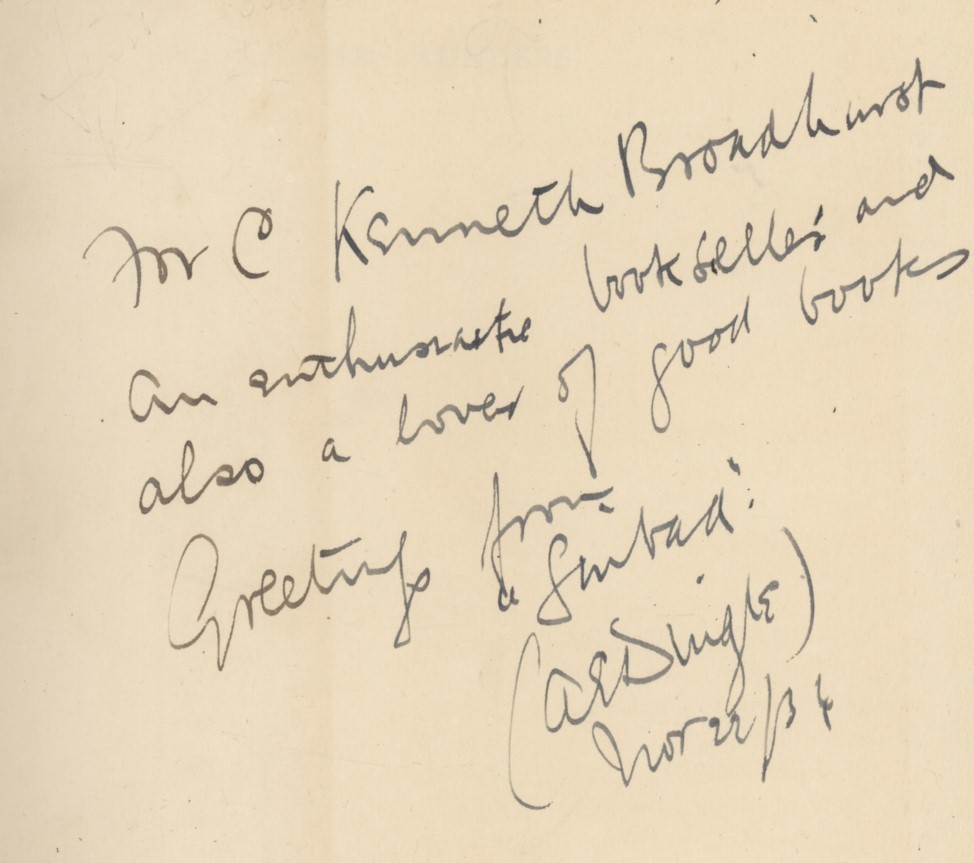 For C Kenneth Broadhurst
An enthusiastic bookseller and
also a lover of good books
Greetings from
"Sinbad".
(AEDingle)
Nov 22/34